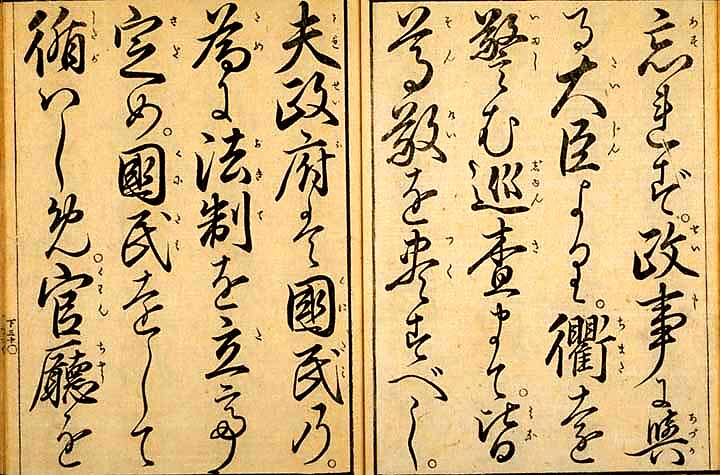 忘れず。政事に與
る大臣より。衢を
警む巡査まで。皆
尊敬を尽すべし。
夫政府は國民の。
為に法制を立て
定め。國民をして
循はしめ。官廳を
下三十